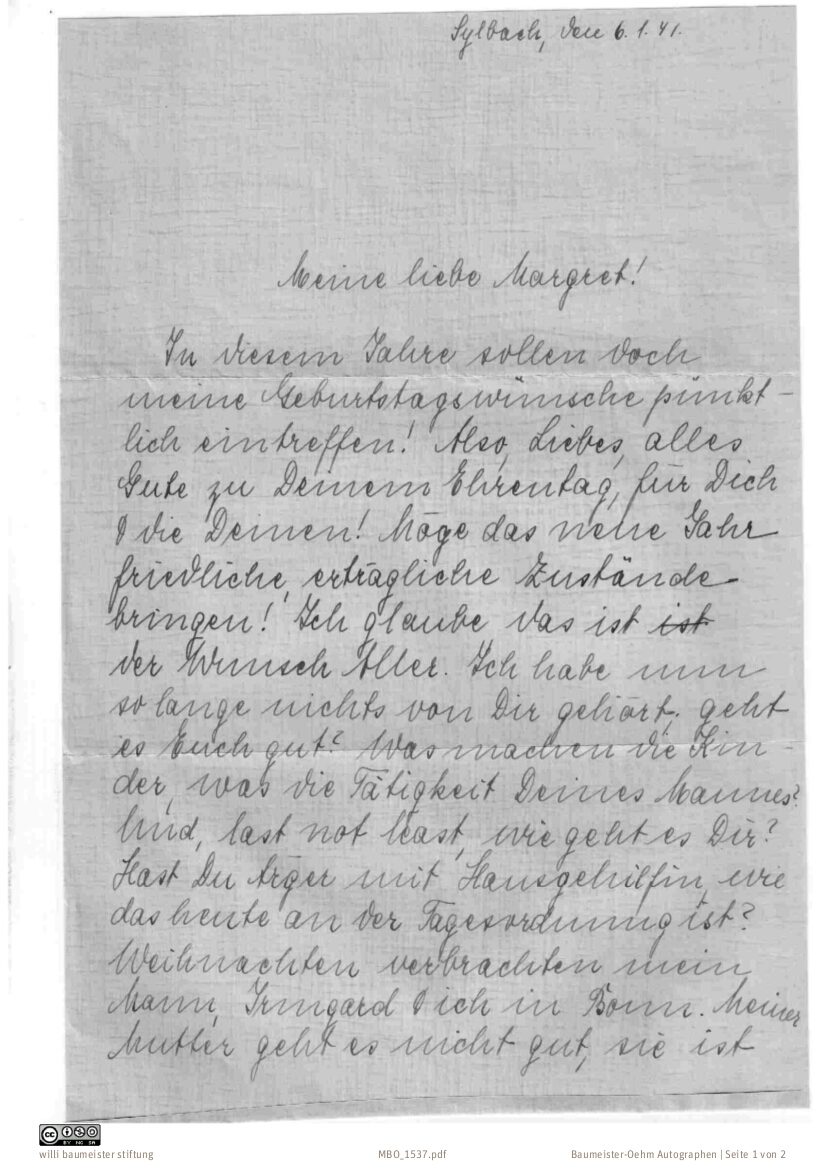 Sylbach, den 6. 1. 41.
Meine liebe Margret!
In diesem Jahre sollen doch
meine Geburtstagswünsche pünkt-
lich eintreffen! Also, Liebes, alles
Gute zu Deinem Ehrentag, für Dich
& die Deinen! Möge das neue Jahr
friedliche, erträgliche Zustände
bringen! Ich glaube, das ist ist
der Wunsch Aller. Ich habe nun
so lange nichts von Dir gehört; geht
es Euch gut? Was machen die Kin-
der, was die Tätigkeit Deines Mannes?
Und, last not least, wie geht es Dir?
Hast Du Ärger mit Hausgehilfin, wie
das heute an der Tagesordnung ist?
Weihnachten verbrachten mein
Mann, Irmgard & ich in Bonn. Meiner
Mutter geht es nicht gut, sie ist
CC BY NC SA
willi baumeister stiftung
MBO_1537.pdf
Baumeister-Oehm Autographen | Seite 1 von 2